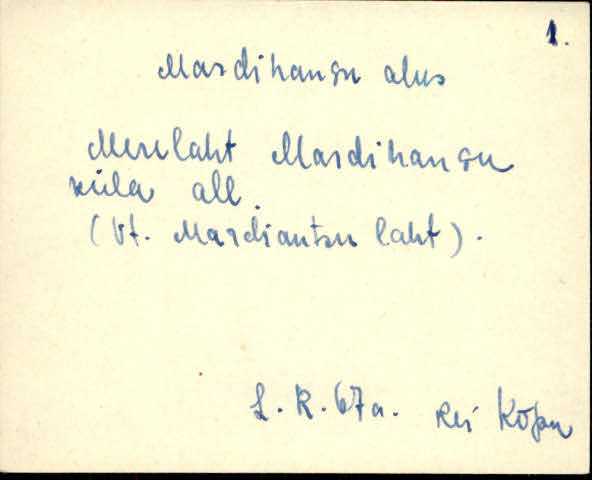 1.
Mardihansu alus
Merelaht Mardihansu
küla all.
(Vt. Mardiantsu laht).
L. R. 67a. Rei Kõpu